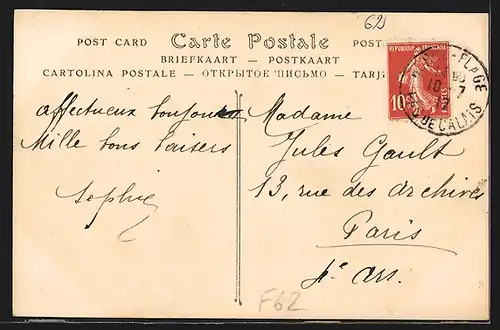 62
POST CARD Carte Postale POST
BRIEFKAART — POSTKAART
CARTOLINA POSTALE — ОТКРЫТОЕ ПИСЬМО — TARJ
REPUBLIQUE FRANÇAISE
10
POSTES
-PLAGE
10-7
12
PAS DE CALAIS
affectueux bonjours
Mille bons baisers
Sophie
Madame
Jules Gault
13, rue des archives
Paris
4e arr.
F62